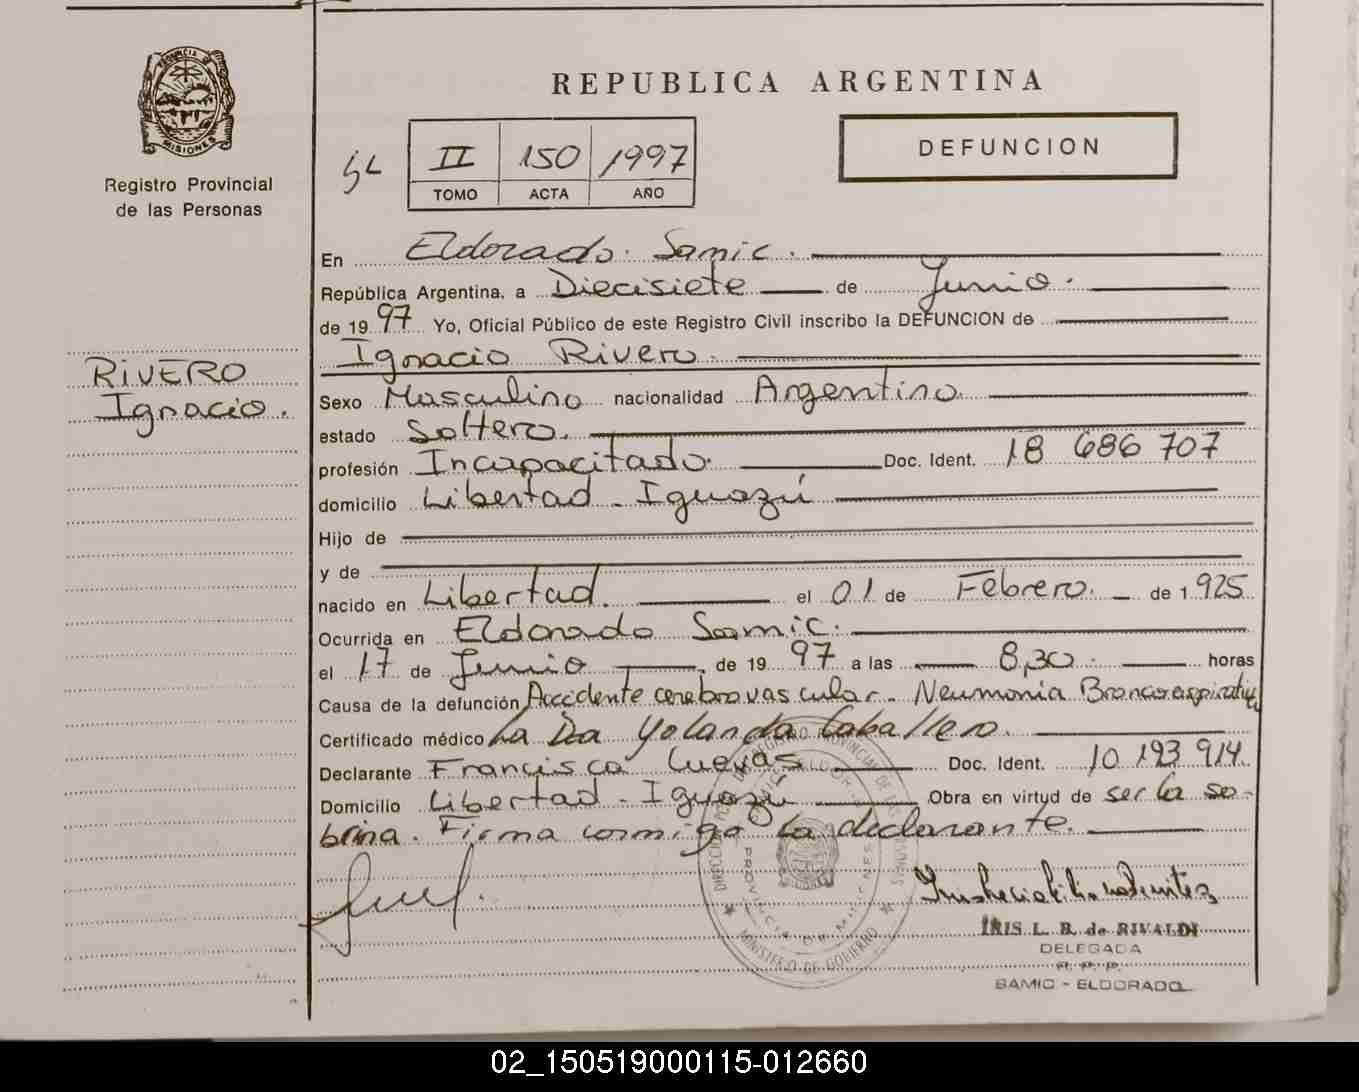 REPUBLICA ARGENTINA
PROVINCIA DE
MISIONES
Registro Provincial
de las Personas
II 150 1997
TOMO ACTA AÑO
DEFUNCION
RIVERO
Ignacio.
En Eldorado. Samic.
República Argentina, a Diecisiete de Junio.
de 1997 Yo, Oficial Público de este Registro Civil inscribo la DEFUNCION de
Ignacio Rivero.
Sexo Masculino nacionalidad Argentino.
estado Soltero.
profesión Incapacitado. Doc. Ident. 18 686 707
domicilio Libertad - Iguazú
Hijo de
y de
nacido en Libertad. el 01 de Febrero. de 1.925
Ocurrida en Eldorado Samic.
el 17 de Junio de 1997 a las 8,30. horas
Causa de la defunción Accidente cerebrovascular. Neumonía
Certificado médico La Dra Yolanda Caballero.
Declarante Francisca Cuevas Doc. Ident. 10 193 914.
Domicilio Libertad - Iguazú Obra en virtud de ser la so-
brina. Firma conmigo la declarante.
IRIS L. B. de RIVALDI
DELEGADA
R. P. P.
SAMIC - ELDORADO
MINISTERIO DE GOBIERNO
PROVINCIA DE MISIONES
02_150519000115-012660